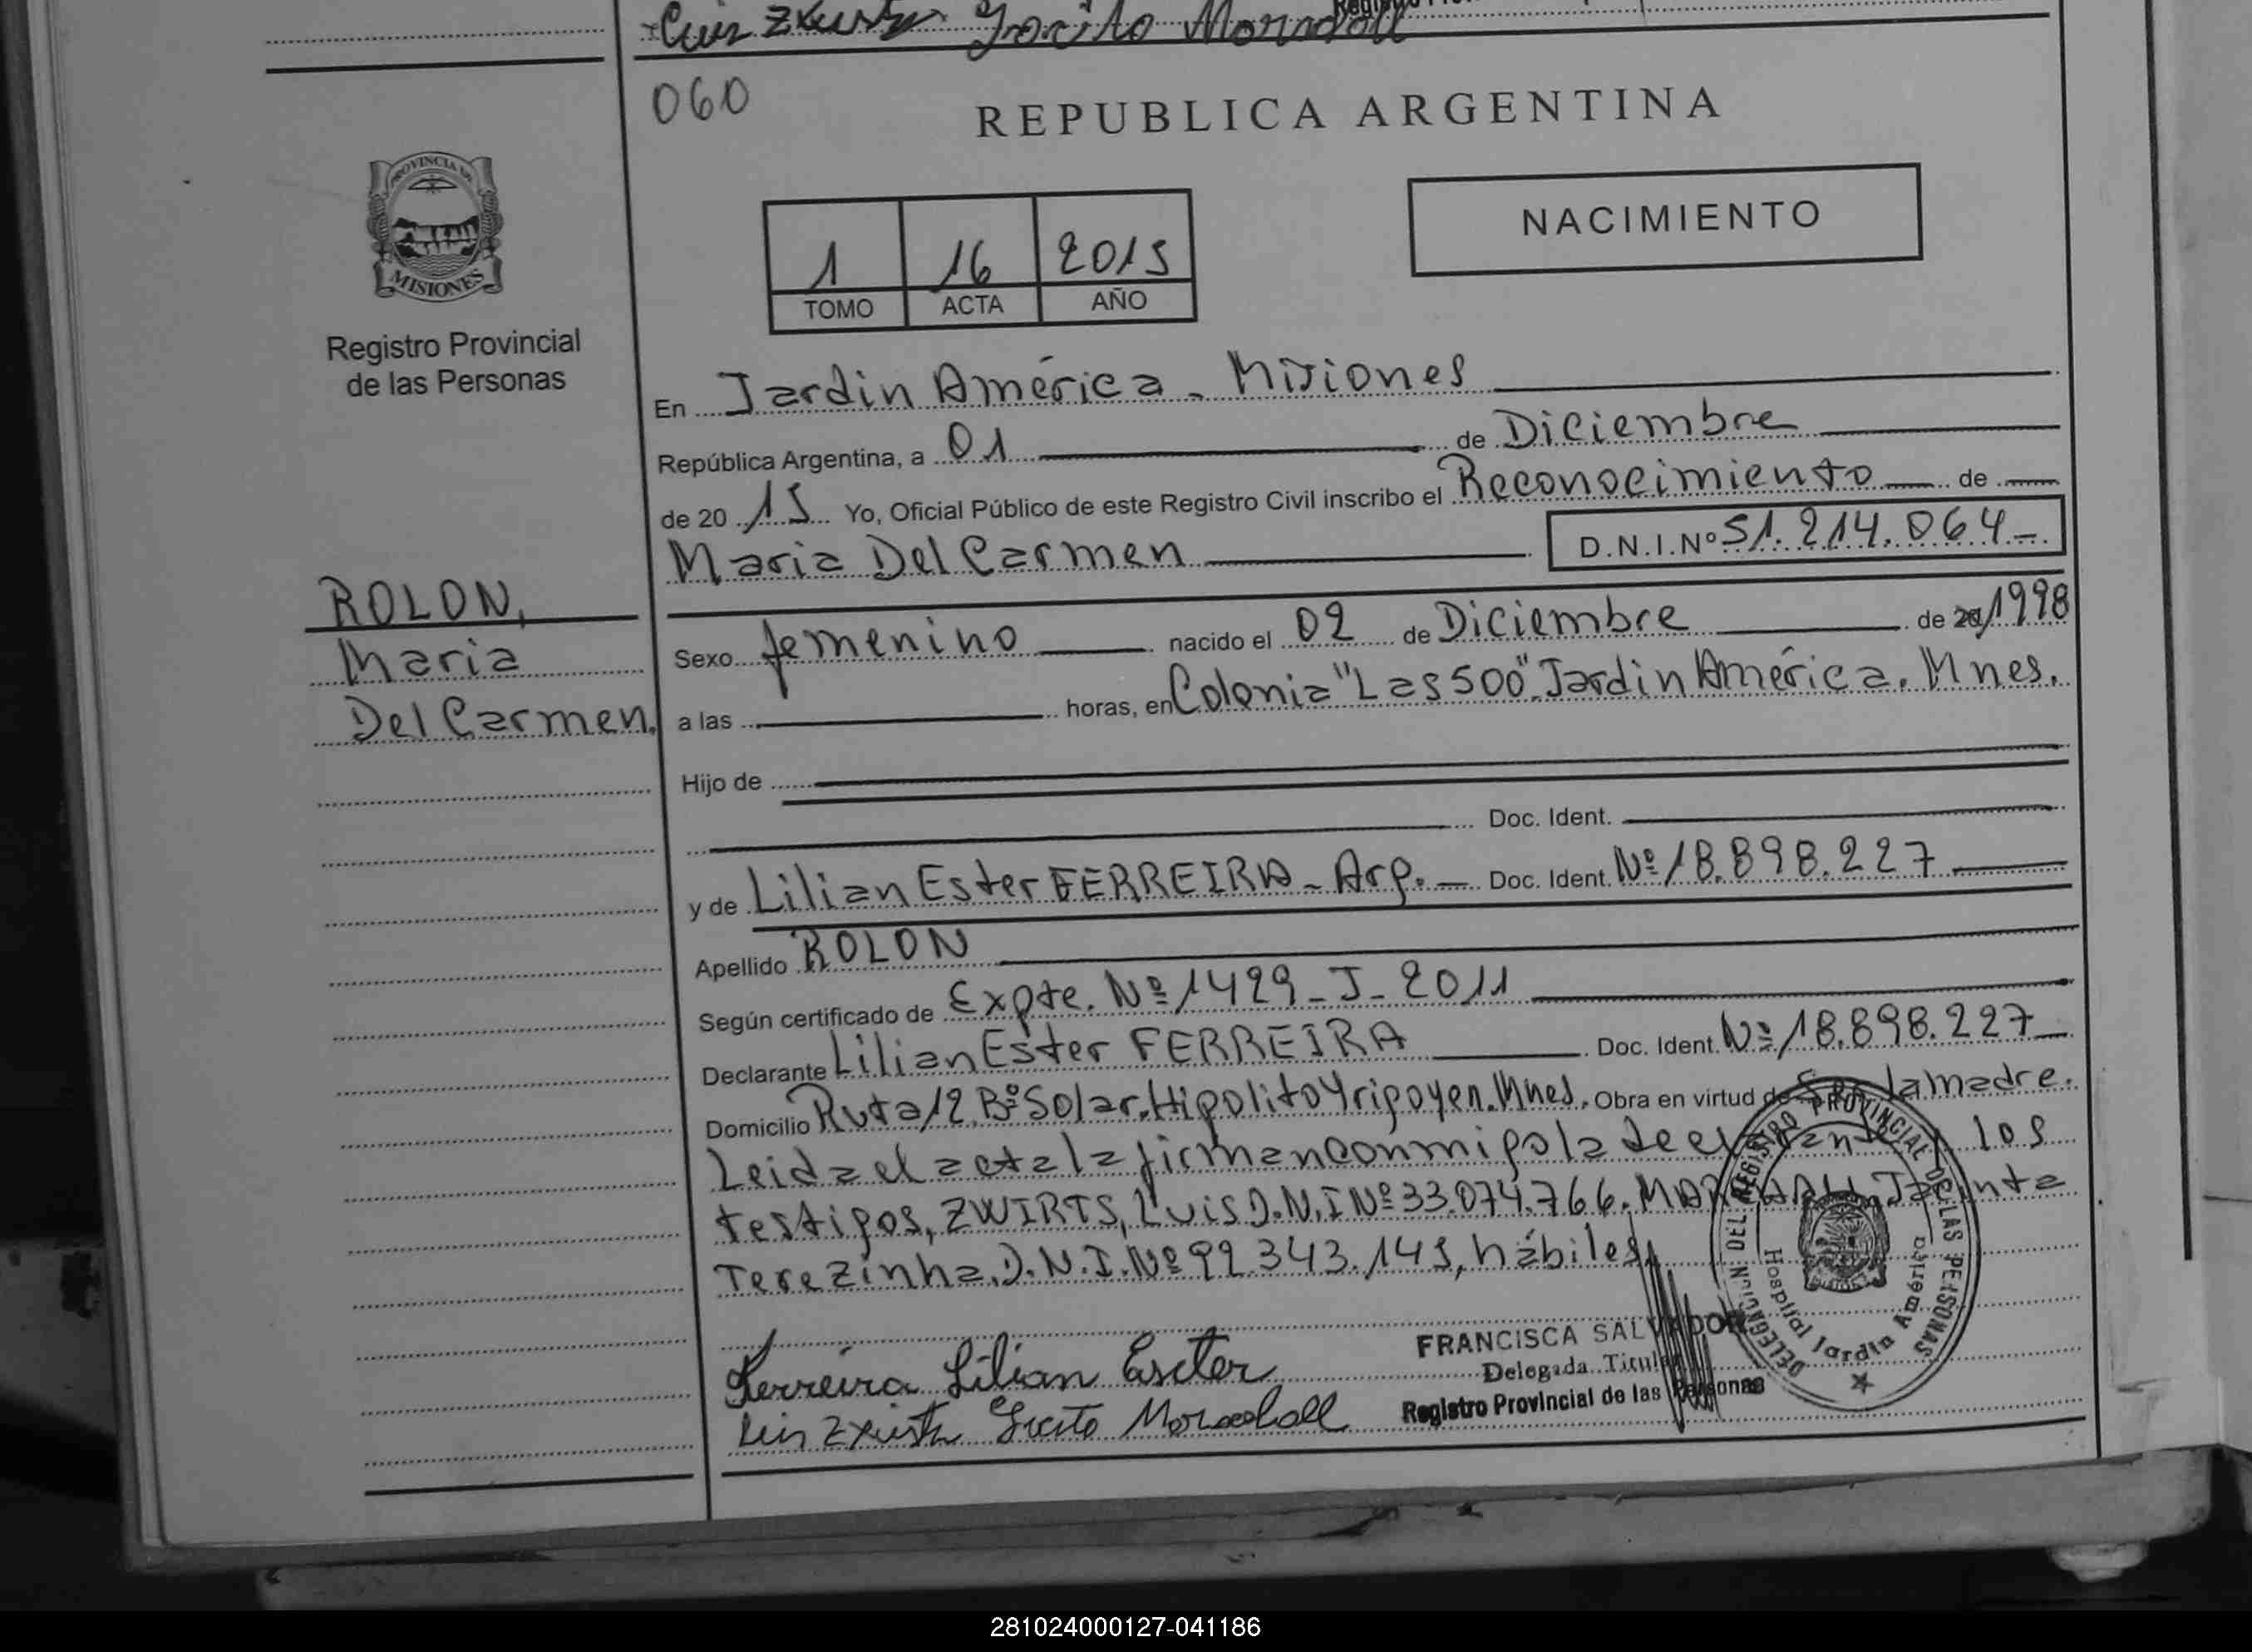 Luis Zxirstz Jacito Morndoll
060
REPUBLICA ARGENTINA
PROVINCIA DE
MISIONES
Registro Provincial
de las Personas
NACIMIENTO
1 16 2015
TOMO ACTA AÑO
En Jardin América - Misiones
República Argentina, a 01 de Diciembre
de 20 15 Yo, Oficial Público de este Registro Civil inscribo el Reconocimiento de
Maria Del Carmen D.N.I.Nº 51.214.064-
ROLON,
Maria
Del Carmen.
Sexo femenino nacido el 02 de Diciembre de 20/1998
a las horas, en Colonia "Las 500". Jardin América. Mnes.
Hijo de
Doc. Ident.
y de Lilian Ester FERREIRA - Arg. - Doc. Ident. Nº 18.898.227
Apellido ROLON
Según certificado de Expte. Nº 1429-J-2011
Declarante Lilian Ester FERREIRA Doc. Ident. Nº 18.898.227
Domicilio Ruta 12 Bº Solar. Hipolito Yrigoyen. Mnes. Obra en virtud de Ser la madre.
Leida el acta la firman conmigo la los
testigos, ZWIRTS, Luis D.N.I Nº 33.074.766. Jacinta
Terezinha. D.N.I. Nº 92.343.145, hábiles
Ferreira Lilian Escter
FRANCISCA SALVADOR
Delegada Titular
Registro Provincial de las Personas
Luis Morashall
DELEGACION DEL REGISTRO PROVINCIAL DE LAS PERSONAS
Hospital Jardin América
281024000127-041186